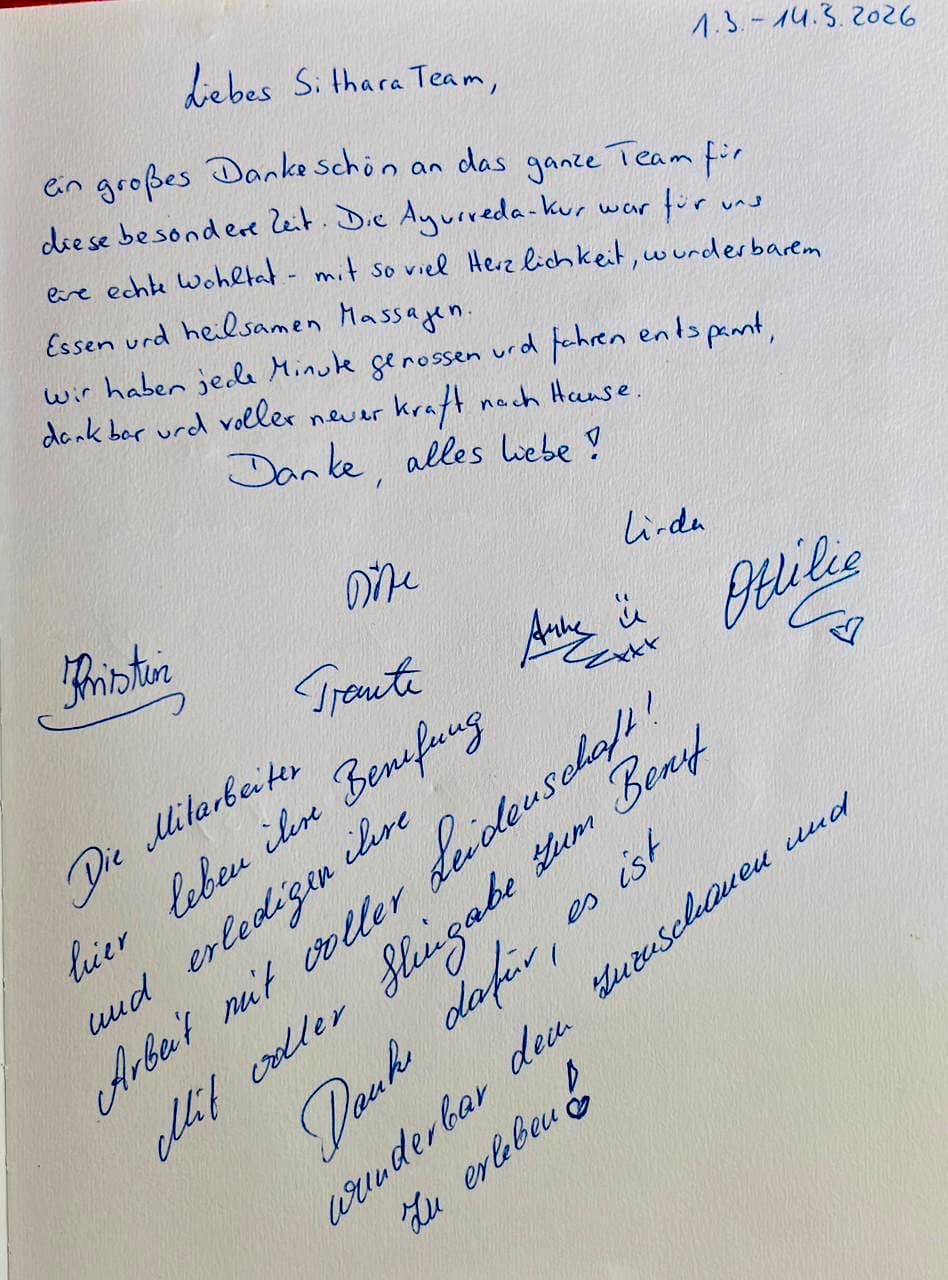 1.3. - 14.3. 2026
Liebes Sithara Team,
ein großes Dankeschön an das ganze Team für
diese besondere Zeit. Die Ayurveda-Kur war für uns
eine echte Wohltat - mit so viel Herzlichkeit, wunderbarem
Essen und heilsamen Massagen.
Wir haben jede Minute genossen und fahren entspannt,
dankbar und voller neuer Kraft nach Hause.
Danke, alles Liebe!
Linda
Ottilie
Anke
Kristin
Traute
Die Mitarbeiter
hier leben ihre Berufung
und erledigen ihre
Arbeit mit voller Leidenschaft!
Mit voller Hingabe zum Beruf
Danke dafür, es ist
wunderbar dem zuzuschauen und
zu erleben!